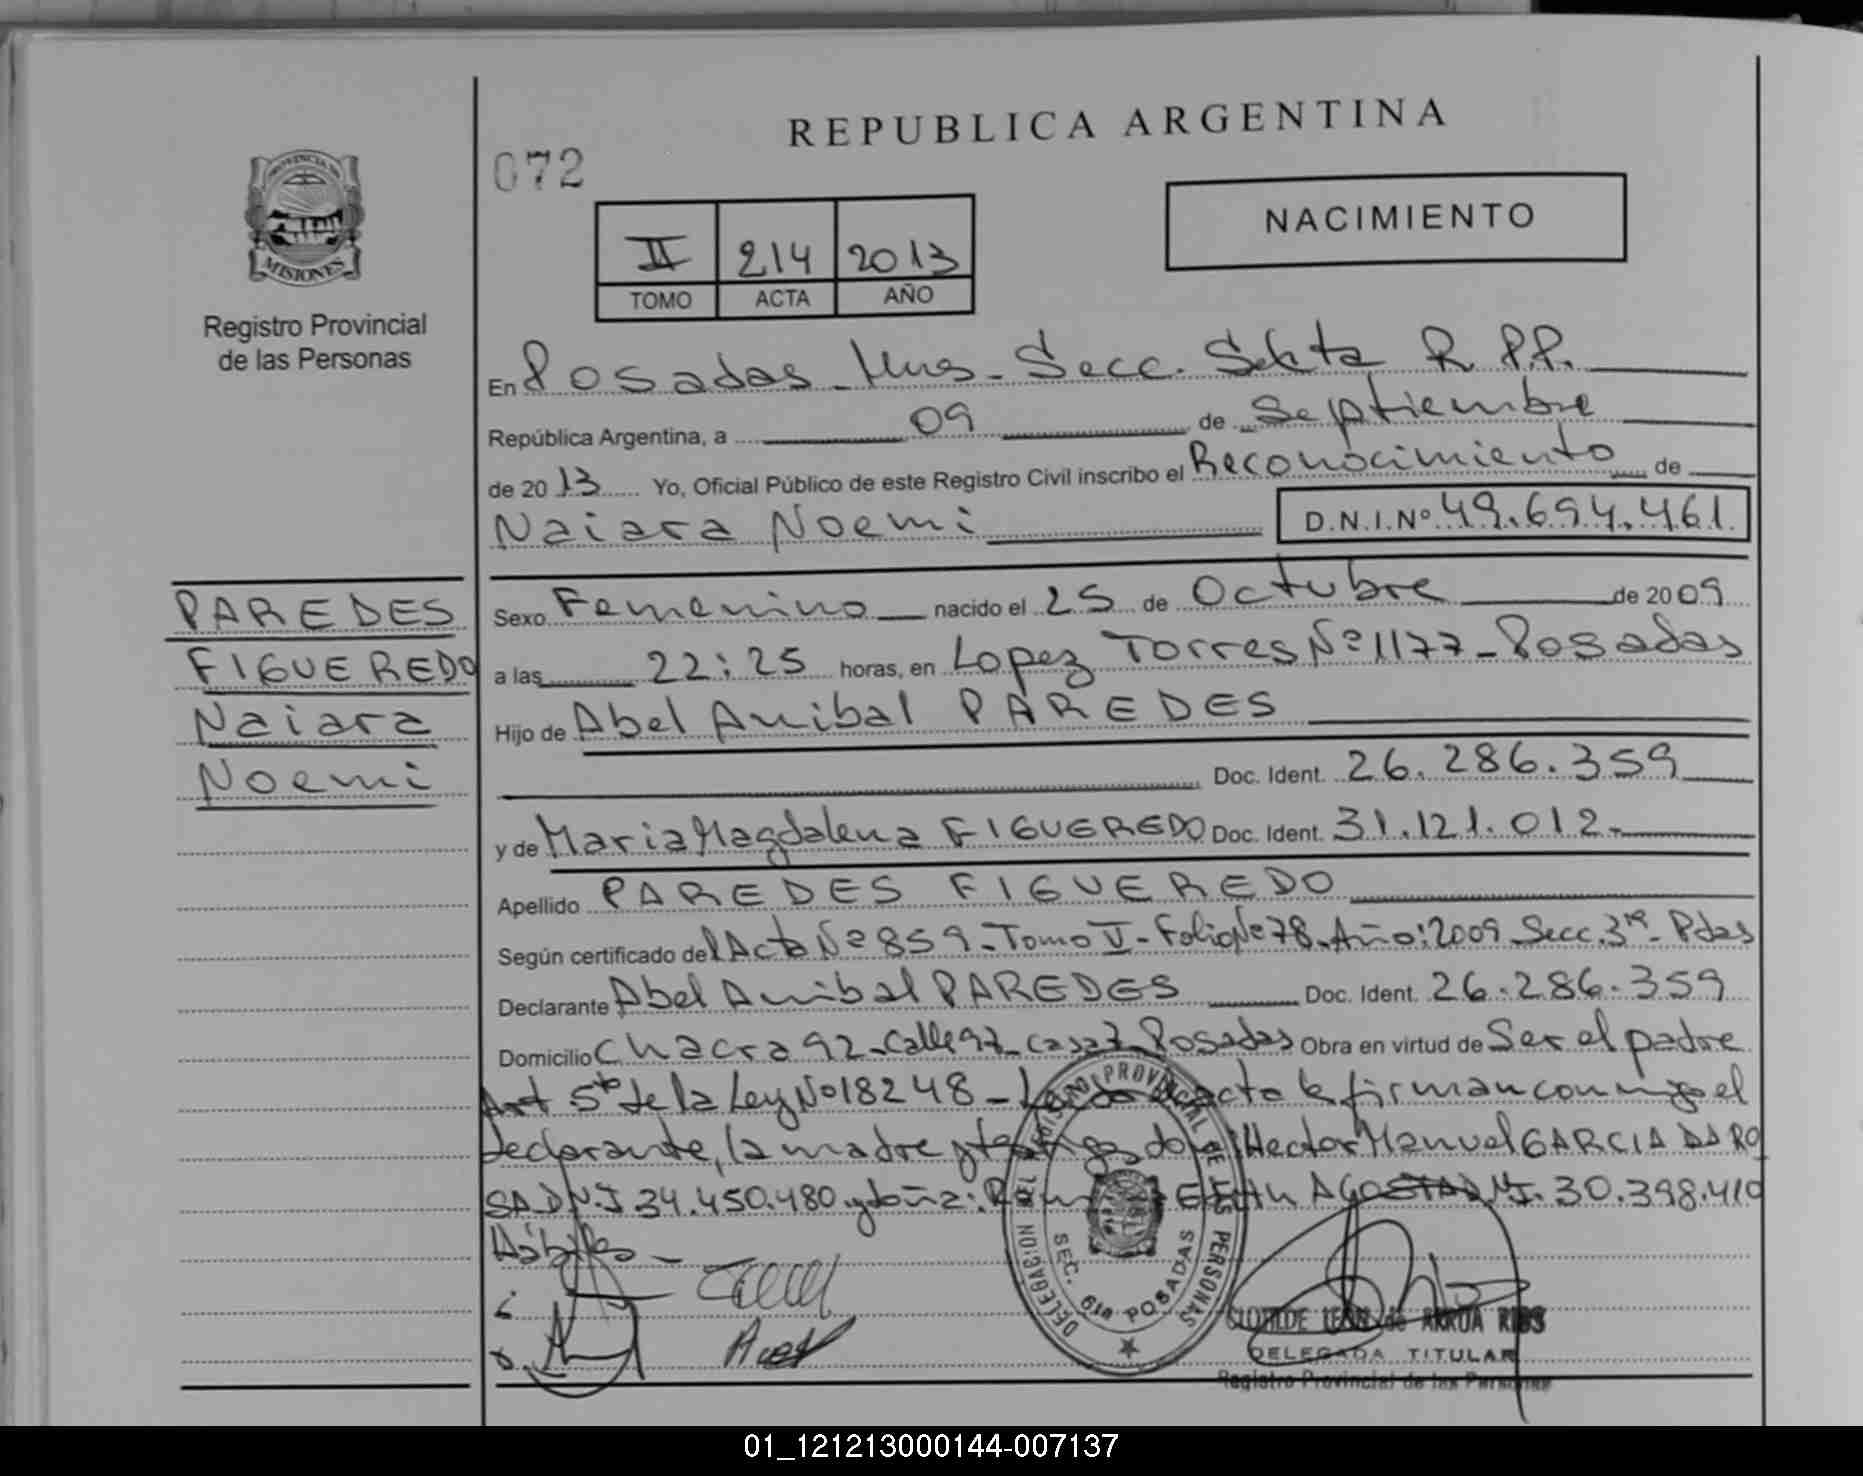 REPUBLICA ARGENTINA
072
NACIMIENTO
II 214 2013
TOMO ACTA AÑO
PROVINCIA DE
MISIONES
Registro Provincial
de las Personas
En Posadas - Mnes - Secc. Sexta R.P.P.
República Argentina, a 09 de Septiembre
de 2013 Yo, Oficial Público de este Registro Civil inscribo el Reconocimiento de
Naiara Noemi D.N.I.Nº 49.694.461.
PAREDES
FIGUEREDO
Naiara
Noemi
Sexo Femenino nacido el 25 de Octubre de 2009
a las 22:25 horas, en Lopez Torres Nº 1177 - Posadas
Hijo de Abel Anibal PAREDES
Doc. Ident. 26.286.359
y de Maria Magdalena FIGUEREDO Doc. Ident. 31.121.012.-
Apellido PAREDES FIGUEREDO
Según certificado del Acta Nº 859 - Tomo V - Folio Nº 78 - Año: 2009 Secc. 3ra - Pdas
Declarante Abel Anibal PAREDES Doc. Ident. 26.286.359
Domicilio Chacra 92 - Calle 97 - casa 7 - Posadas Obra en virtud de Ser el padre
Art 5to de la Ley Nº 18248 - acta la firman conmigo el
Declarante, la madre y testigos don: Hector Manuel GARCIA DA RO
SA D.N.I 34.450.480 y doña: AGOSTA D.N.I. 30.398.410
Hábiles -
DELEGACION DEL REGISTRO PROVINCIAL DE LAS PERSONAS
SEC. 6ta POSADAS
CLOTILDE LEON de ARRUA RIOS
DELEGADA TITULAR
Registro Provincial de las Personas
01_121213000144-007137